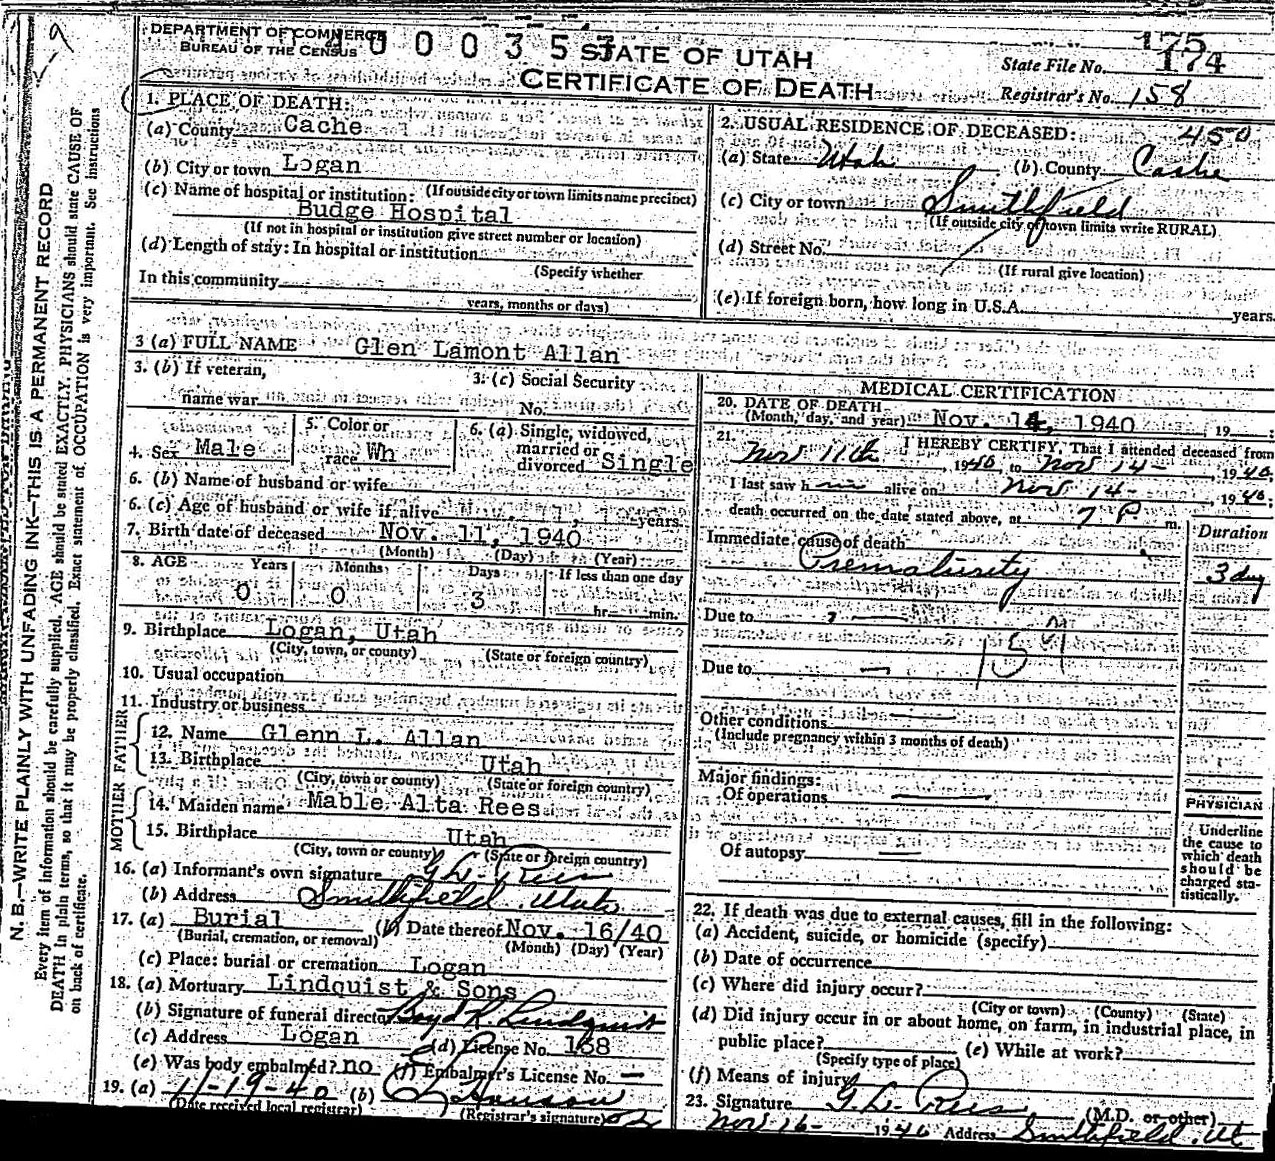 DEPARTMENT OF COMMERCE
BUREAU OF THE CENSUS
STATE OF UTAH
CERTIFICATE OF DEATH
175
State File No. 174
Registrar's No. 158
N. B.—WRITE PLAINLY WITH UNFADING INK—THIS IS A PERMANENT RECORD
Every item of information should be carefully supplied. AGE should be stated EXACTLY. PHYSICIANS should state CAUSE OF
DEATH in plain terms, so that it may be properly classified. Exact statement of OCCUPATION is very important. See instructions
on back of certificate.
1. PLACE OF DEATH:
(a) County Cache
(b) City or town Logan
(If outside city or town limits name precinct)
(c) Name of hospital or institution:
Budge Hospital
(If not in hospital or institution give street number or location)
(d) Length of stay: In hospital or institution
(Specify whether
In this community
years, months or days)
2. USUAL RESIDENCE OF DECEASED: 450
(a) State Utah (b) County Cache
(c) City or town Smithfield
(If outside city of town limits write RURAL)
(d) Street No.
(If rural give location)
(e) If foreign born, how long in U.S.A. years.
3 (a) FULL NAME Glen Lamont Allan
3. (b) If veteran,
name war
3. (c) Social Security
No.
4. Sex Male
5. Color or
race Wh
6. (a) Single, widowed,
married or
divorced Single
6. (b) Name of husband or wife
6. (c) Age of husband or wife if alive years.
7. Birth date of deceased Nov. 11, 1940
(Month) (Day) (Year)
8. AGE Years Months Days If less than one day
0 0 3 hr. min.
9. Birthplace Logan, Utah
(City, town, or county) (State or foreign country)
10. Usual occupation
11. Industry or business
FATHER
12. Name Glenn L. Allan
13. Birthplace Utah
(City, town or county) (State or foreign country)
MOTHER
14. Maiden name Mable Alta Rees
15. Birthplace Utah
(City, town or county) (State or foreign country)
16. (a) Informant's own signature G. L. Rees
(b) Address Smithfield Utah
17. (a) Burial (b) Date thereof Nov. 16/40
(Burial, cremation, or removal) (Month) (Day) (Year)
(c) Place: burial or cremation Logan
18. (a) Mortuary Lindquist & Sons
(b) Signature of funeral director Boyd R. Lindquist
(c) Address Logan (d) License No. 168
(e) Was body embalmed? no (f) Embalmer's License No. —
19. (a) 11-19-40 (b)
(Date received local registrar) (Registrar's signature)
MEDICAL CERTIFICATION
20. DATE OF DEATH
(Month, day, and year) Nov. 14, 1940 19
21. I HEREBY CERTIFY, That I attended deceased from
Nov 11th, 1940, to Nov 14-, 1940.
I last saw him alive on Nov 14-, 1940:
death occurred on the date stated above, at 7 P. m.
Duration
Immediate cause of death
Prematurity 3 day
Due to
Due to —
Other conditions
(Include pregnancy within 3 months of death)
Major findings:
Of operations
Of autopsy
PHYSICIAN
Underline
the cause to
which death
should be
charged sta-
tistically.
22. If death was due to external causes, fill in the following:
(a) Accident, suicide, or homicide (specify)
(b) Date of occurrence
(c) Where did injury occur?
(City or town) (County) (State)
(d) Did injury occur in or about home, on farm, in industrial place, in
public place? (e) While at work?
(Specify type of place)
(f) Means of injury
23. Signature G. L. Rees (M.D. or other)
Nov 16- 1940 Address Smithfield Ut